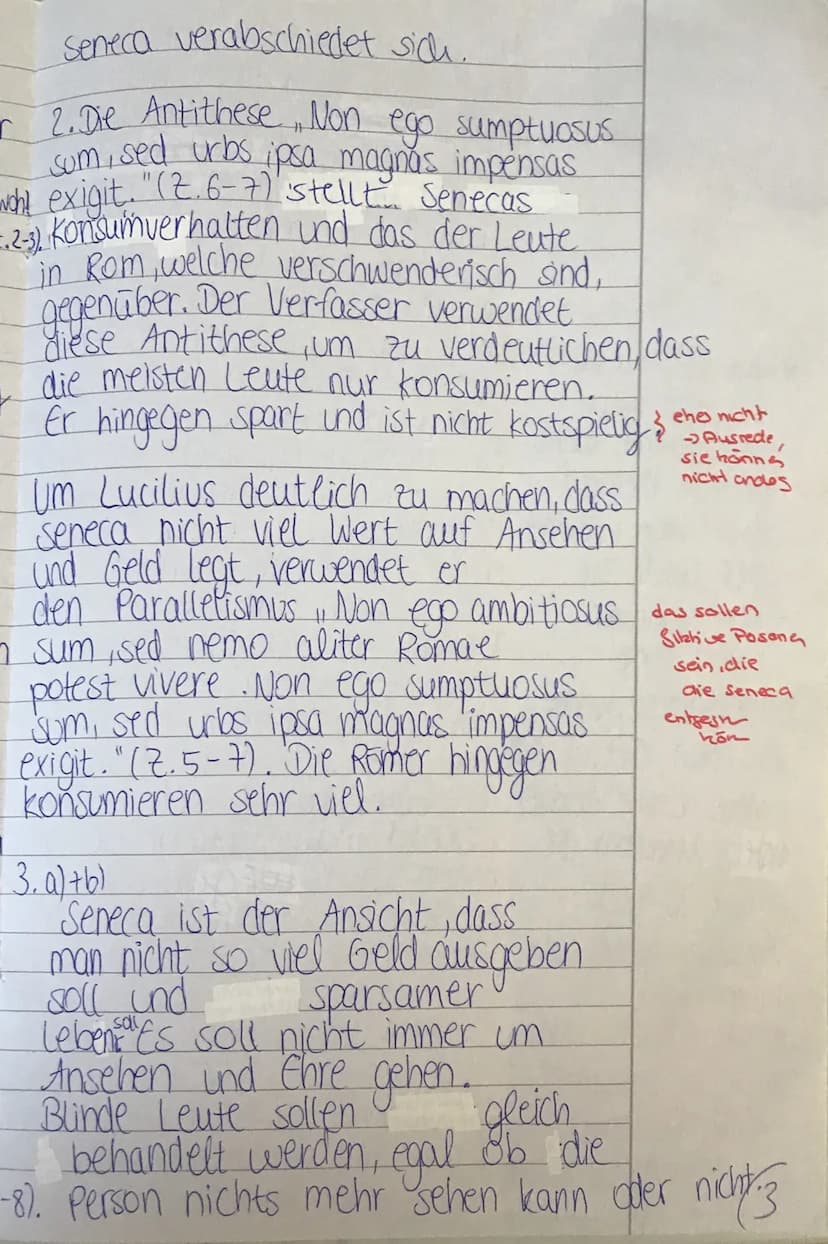 Seneca verabschiedet sich.
2. Die Antithese „Non ego sumptuosus
sum, sed urbs ipsa magnas impensas
exigit." (Z. 6-7) stellt Senecas
.2-3). Konsumverhalten und das der Leute
in Rom, welche verschwenderisch sind,
gegenüber. Der Verfasser verwendet
diese Antithese, um zu verdeutlichen, dass
die meisten Leute nur konsumieren.
Er hingegen spart und ist nicht kostspielig
eher nicht
→ Ausrede,
sie können
nicht anders
Um Lucilius deutlich zu machen, dass
Seneca nicht viel Wert auf Ansehen
und Geld legt, verwendet er
den Parallelismus „Non ego ambitiosus
sum, sed nemo aliter Romae
potest vivere. Non ego sumptuosus
sum, sed urbs ipsa magnas impensas
exigit." (Z. 5-7). Die Römer hingegen
konsumieren sehr viel.
das sollen
fiktive Personen
sein, die
die Seneca
3. a)+b)
Seneca ist der Ansicht, dass
man nicht so viel Geld ausgeben
soll und sparsamer
leben soll. Es soll nicht immer um
Ansehen und Ehre gehen.
Blinde Leute sollen gleich
behandelt werden, egal ob die
-8). Person nichts mehr sehen kann oder nicht.